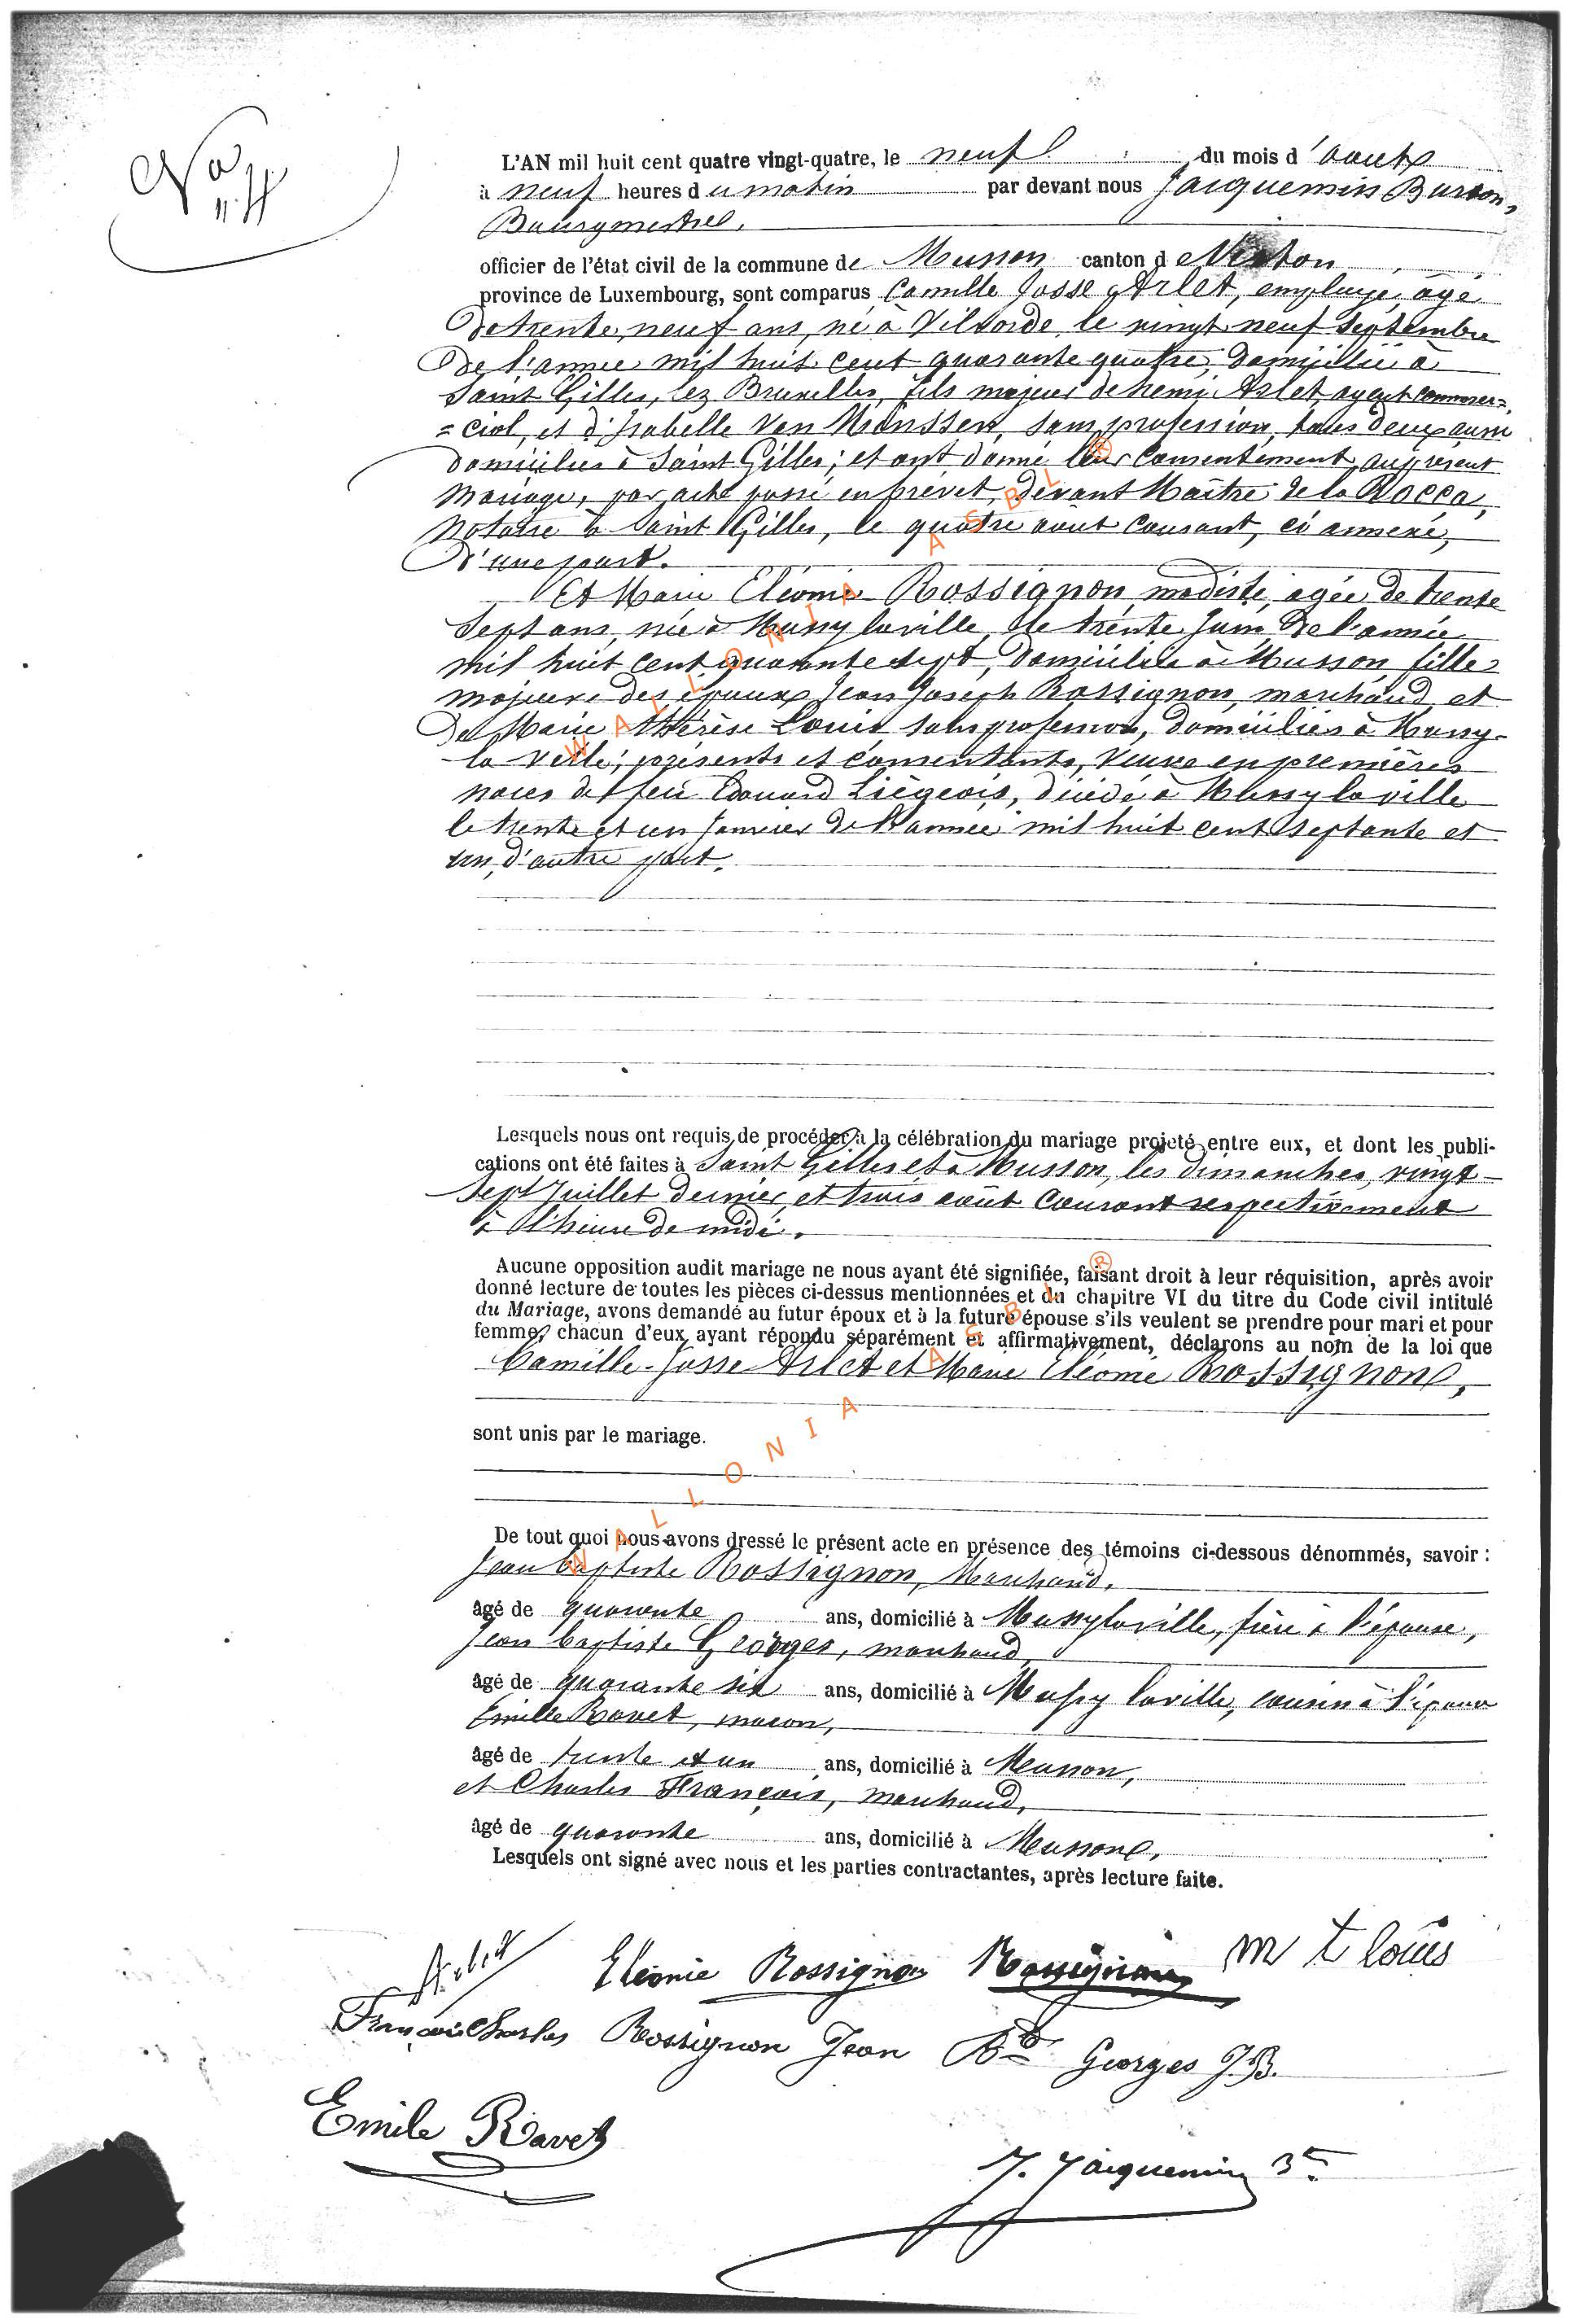 No 11
L'AN mil huit cent quatre vingt-quatre, le neuf du mois d'août
à neuf heures du matin par devant nous Jacquemin Baron,
Bourgmestre,
officier de l'état civil de la commune de Musson canton de Virton
province de Luxembourg, sont comparus Camille Josse Arlet, employé, âgé
de trente neuf ans, né à Vilvorde, le vingt neuf Septembre
de l'année mil huit cent quarante quatre, domicilié à
Saint Gilles, lez Bruxelles, fils majeur de Henri Arlet, agent commer=
=cial, et d'Isabelle Van Minssen, sans profession, tous deux aussi
domiciliés à Saint Gilles; et ont donné leur consentement au présent
mariage, par acte passé en brevet, devant Maître de la Rocca,
Notaire à Saint Gilles, le quatre août courant, ci annexé,
d'une part.
Et Marie Eléonie Rossignon, modiste, agée de trente
Sept ans, née à Mussy la ville, le trente Juin de l'année
mil huit cent quarante sept, domiciliée à Musson, fille
majeure des époux Jean Joseph Rossignon, marchand, et
de Marie Thérèse Louis sans profession, domiciliés à Mussy-
-la-ville; présents et consentants, Veuve en premières
noces de feu Edouard Liègeois, décédé à Mussy la ville
le trente et un Janvier de l'année mil huit cent septante et
un, d'autre part.
Lesquels nous ont requis de procéder à la célébration du mariage projeté entre eux, et dont les publi-
cations ont été faites à Saint Gilles et à Musson, les dimanches, vingt-
sept Juillet dernier, et trois août courant respectivement
à l'heure de midi.
Aucune opposition audit mariage ne nous ayant été signifiée, faisant droit à leur réquisition, après avoir
donné lecture de toutes les pièces ci-dessus mentionnées et du chapitre VI du titre du Code civil intitulé
du Mariage, avons demandé au futur époux et à la future épouse s'ils veulent se prendre pour mari et pour
femme, chacun d'eux ayant répondu séparément et affirmativement, déclarons au nom de la loi que
Camille Josse Arlet et Marie Eléonie Rossignon,
sont unis par le mariage.
De tout quoi nous avons dressé le présent acte en présence des témoins ci-dessous dénommés, savoir :
Jean baptiste Rossignon, Marchand,
âgé de quarante ans, domicilié à Mussy la ville, frère à l'épouse,
Jean baptiste Georges, marchand,
âgé de quarante six ans, domicilié à Mussy laville, cousin à l'épouse
Emille Ravet, maçon,
âgé de trente et un ans, domicilié à Musson,
et Charles François, marchand,
âgé de quarante ans, domicilié à Musson,
Lesquels ont signé avec nous et les parties contractantes, après lecture faite.
Arlet Eléonie Rossignon Rossignon m t louis
François Charles Rossignon Jean Bte Georges J.B.
Emile Ravet
J. Jacquemin Bon
WALLONIA ASBL ®
WALLONIA ASBL ®